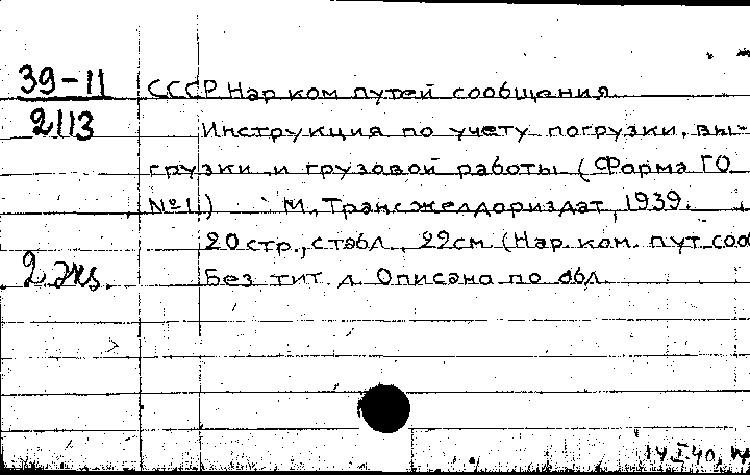 39-11
2113
СССР Нар ком путей сообщения.
Инструкция по учету погрузки, вы-
грузки и грузовой работы (Форма ГО
№1.) М., Трансжелдориздат, 1939.
20 стр., с табл., 22см (Нар. ком. пут соо
2 экз.
Без тит л. Описана по обл.
14 I 40,